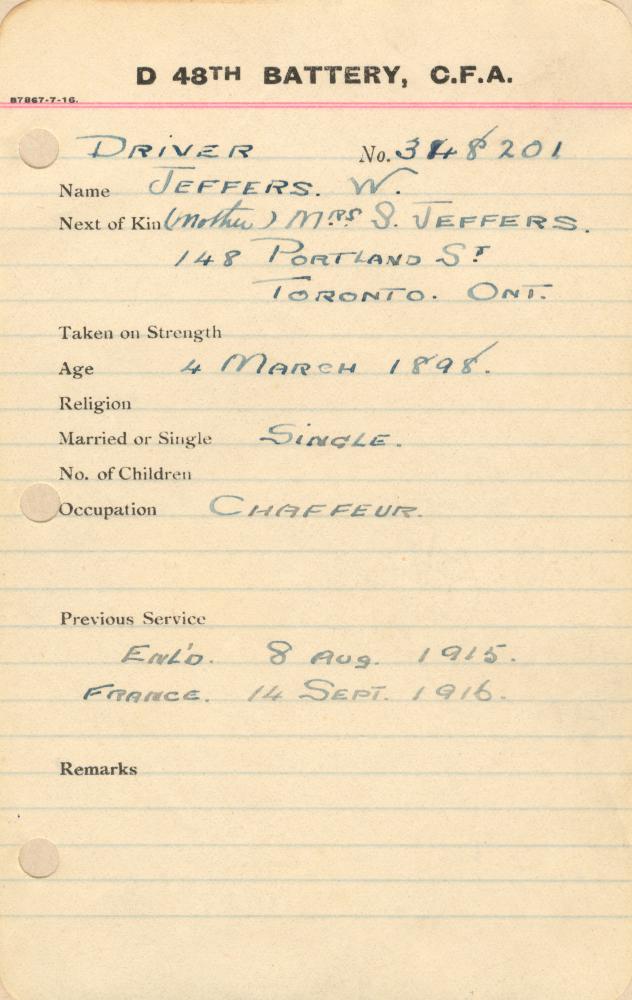 D 48TH BATTERY, C.F.A.
B7867-7-16.
DRIVER No. 348201
Name JEFFERS. W.
Next of Kin (Mother) MRS S. JEFFERS.
148 PORTLAND ST
TORONTO. ONT.
Taken on Strength
Age 4 MARCH 1898.
Religion
Married or Single SINGLE.
No. of Children
Occupation CHAFFEUR.
Previous Service
ENL'D. 8 AUG. 1915.
FRANCE. 14 SEPT. 1916.
Remarks